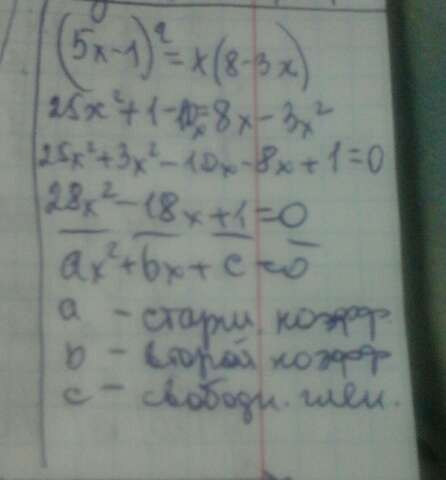 (5x-1)² = x(8-3x)
25x²+1-10x=8x-3x²
25x²+3x²-10x-8x+1=0
28x²-18x+1=0
ax²+bx+c=0
a - старш. коэфф.
b - второй коэфф
c - свободн. член.